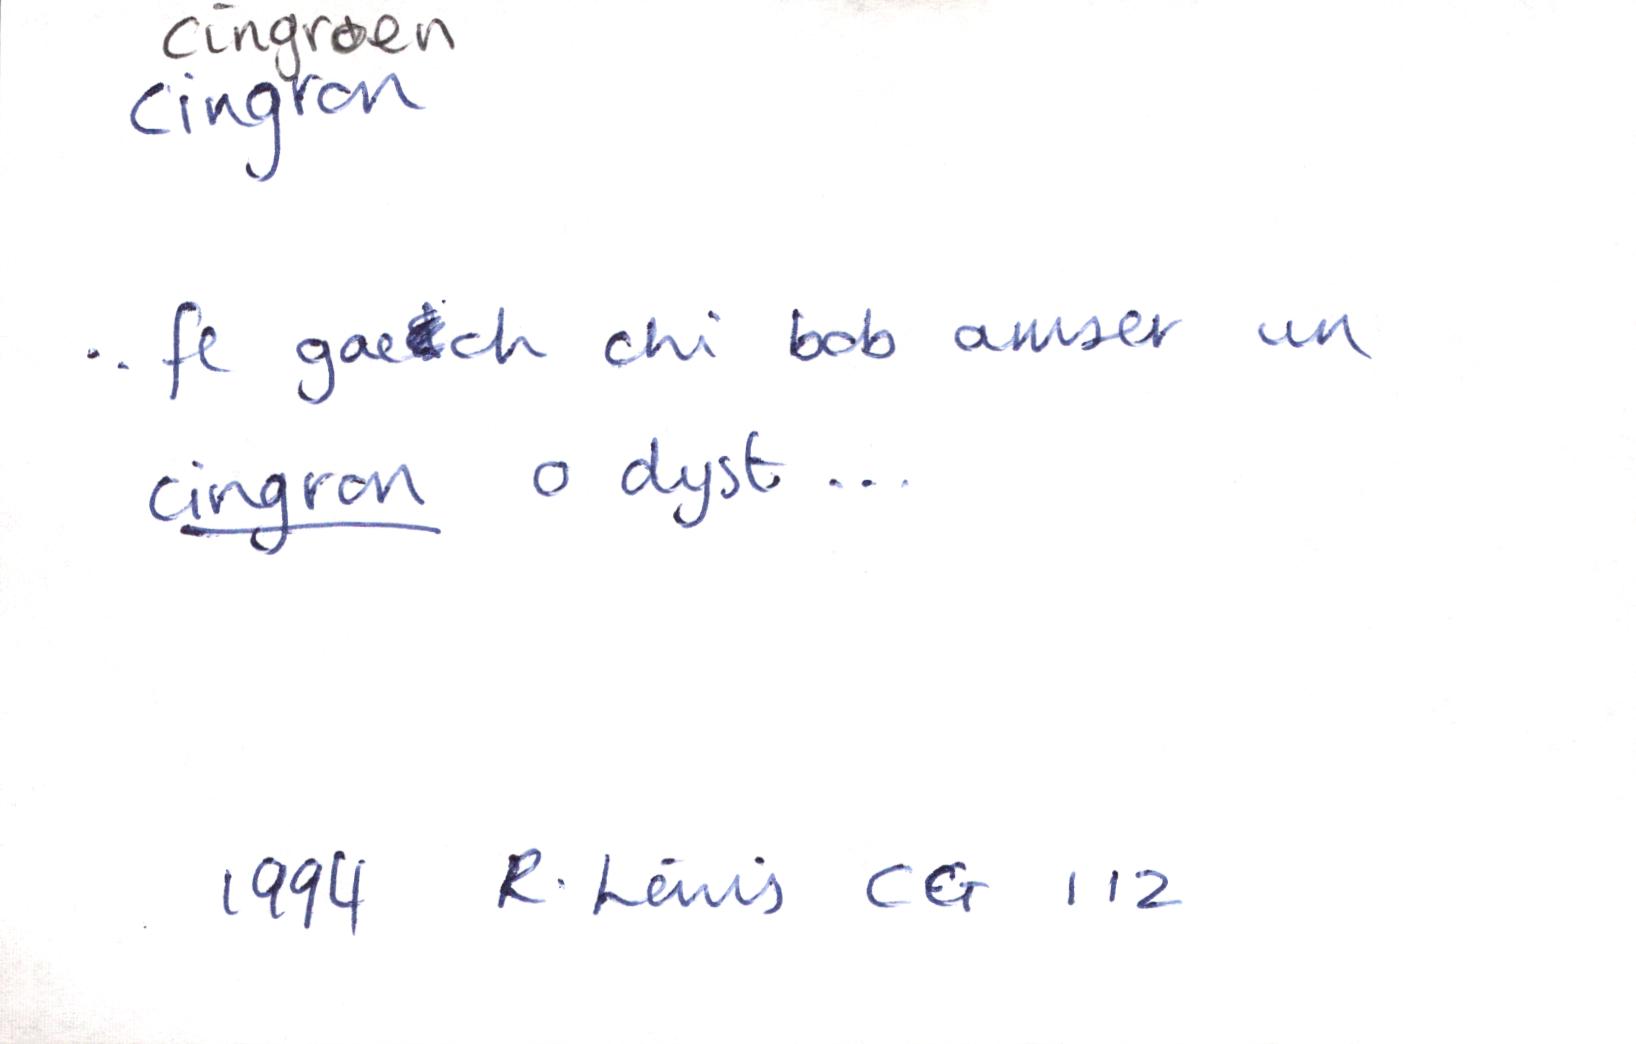 cingroen
cingron
.. fe gaech chi bob amser un
cingron o dyst ...
1994 R. Lewis CG 112